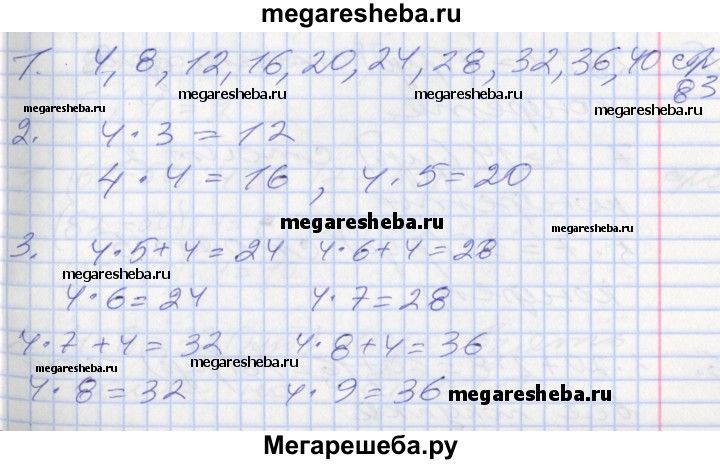 megaresheba.ru
1. 4, 8, 12, 16, 20, 24, 28, 32, 36, 40 стр
megaresheba.ru megaresheba.ru megaresheba.ru 83
2. 4 · 3 = 12
4 · 4 = 16, 4 · 5 = 20
megaresheba.ru
3. 4 · 5 + 4 = 24 4 · 6 + 4 = 28
megaresheba.ru megaresheba.ru
4 · 6 = 24 4 · 7 = 28
4 · 7 + 4 = 32 4 · 8 + 4 = 36
megaresheba.ru megaresheba.ru
4 · 8 = 32 4 · 9 = 36 megaresheba.ru
Мегарешеба.ру